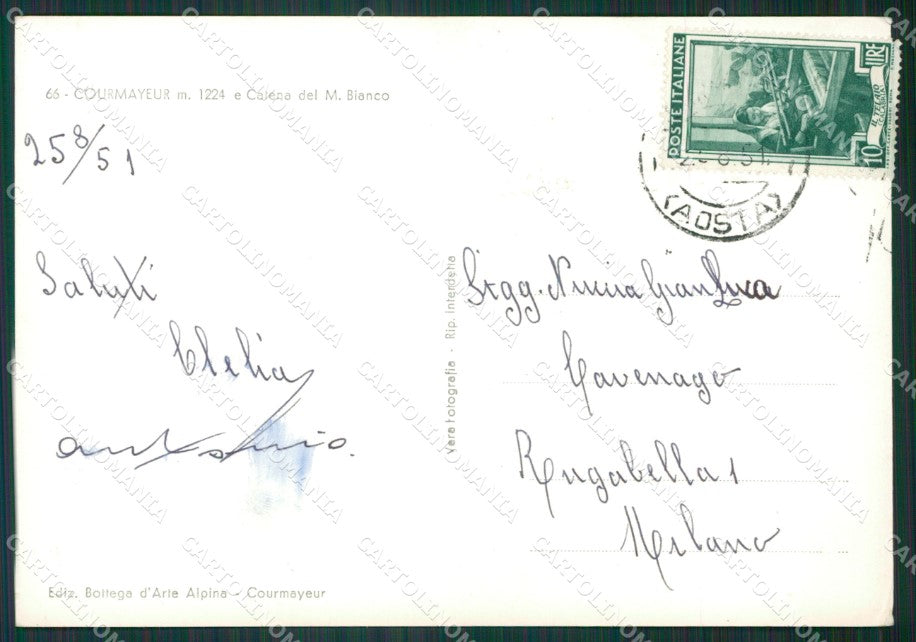 66 - COURMAYEUR m. 1224 e Catena del M. Bianco
25 8/51
Saluti
Clelia
Antonio.
POSTE ITALIANE
LIRE
10
(AOSTA)
Vera Fotografia - Rip. Interdetta
Sigg. Nucia Gianluca
Cavenago
Rugabella 1
Milano
Ediz. Bottega d'Arte Alpina - Courmayeur
CARTOLINOMANIA